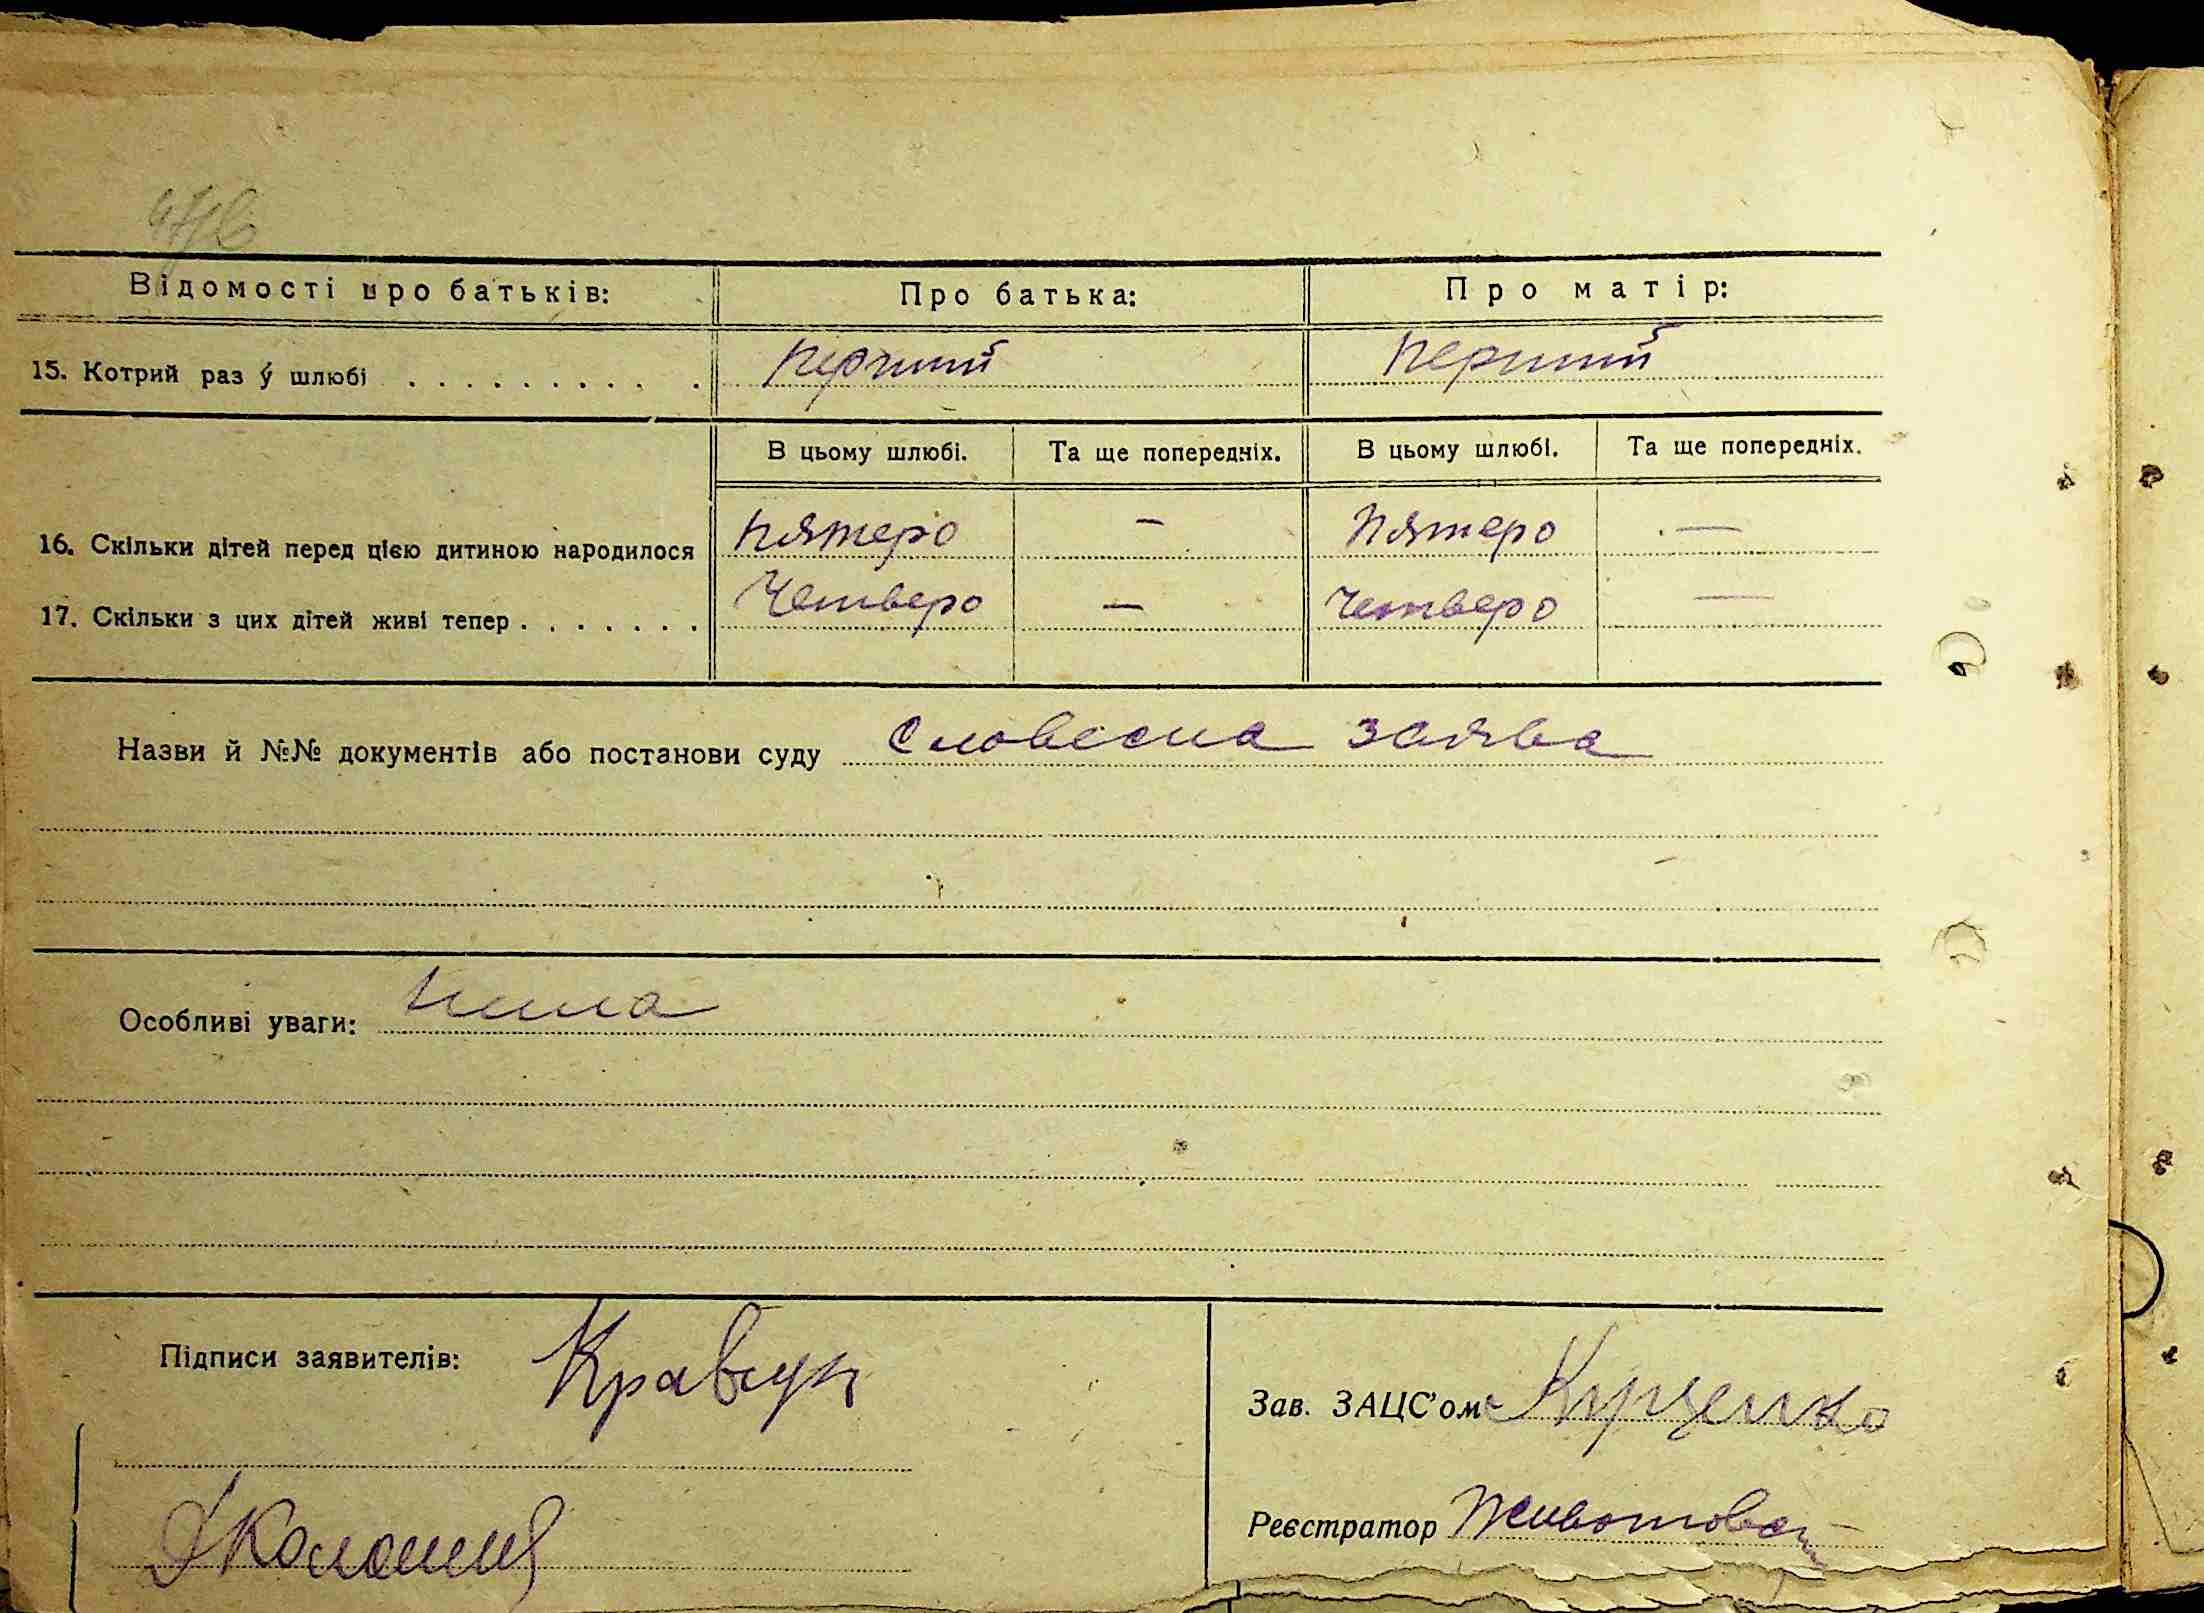 Відомості про батьків: Про батька: Про матір:
15. Котрий раз у шлюбі . . . . . . . . . . перший перший
В цьому шлюбі. Та ще попередніх. В цьому шлюбі. Та ще попередніх.
16. Скільки дітей перед цією дитиною народилося пятеро — пятеро —
17. Скільки з цих дітей живі тепер . . . . . . . Четверо — четверо —
Назви й №№ документів або постанови суду словесна заява
Особливі уваги: нима
Підписи заявителів: Кравчук
Зав. ЗАЦС'ом Куценко
Реєстратор